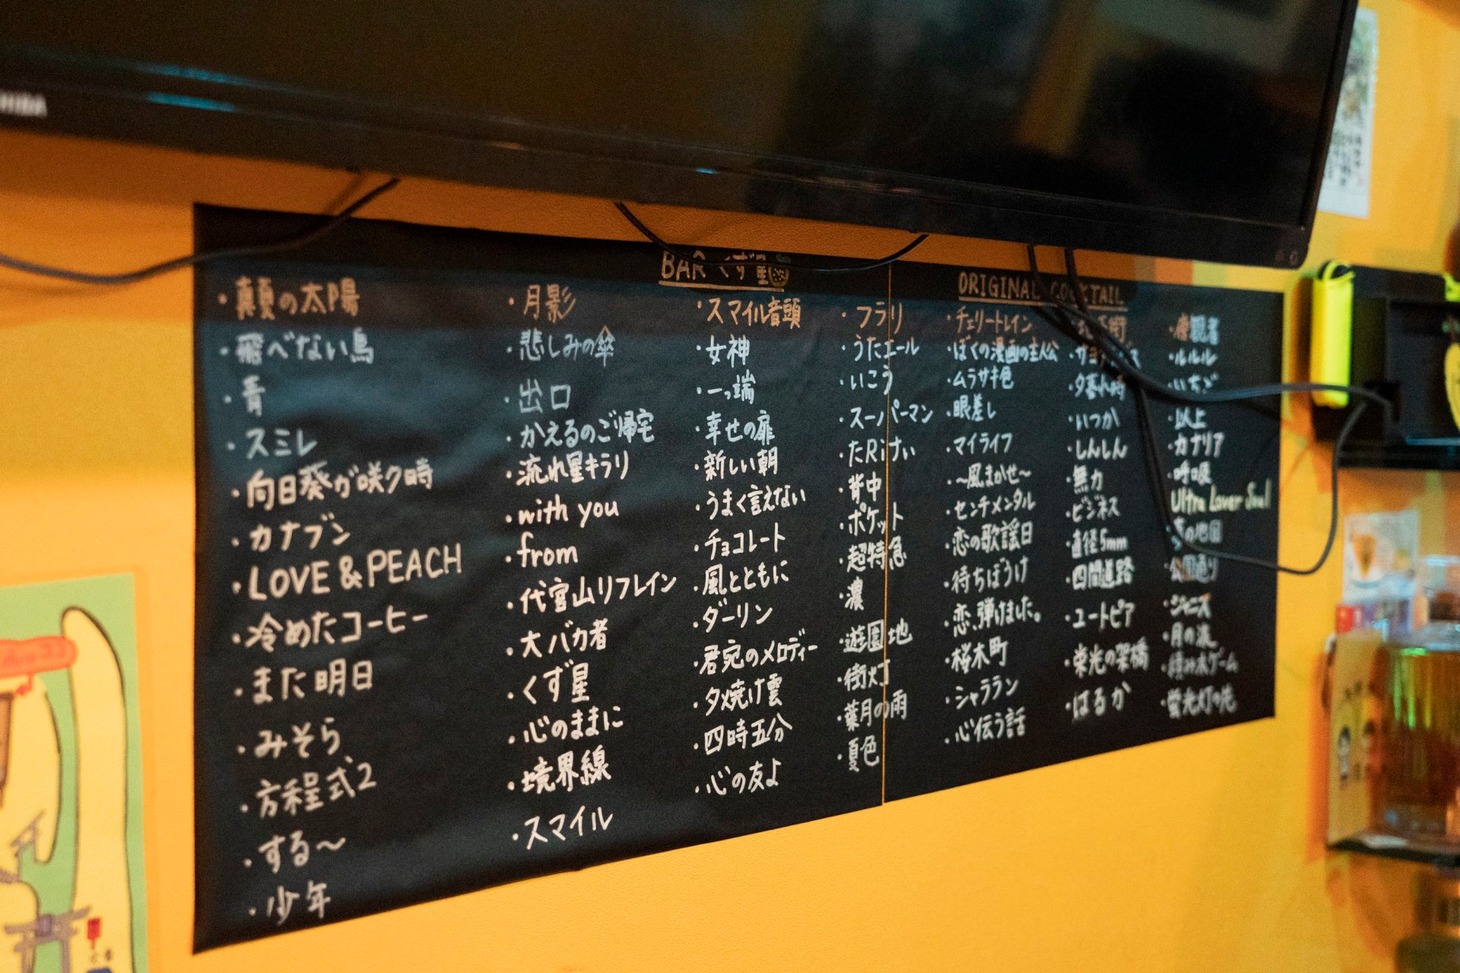 BAR くず星
ORIGINAL COCKTAIL
・真夏の太陽
・飛べない鳥
・青
・スミレ
・向日葵が咲ク時
・カナブン
・LOVE & PEACH
・冷めたコーヒー
・また明日
・みそら
・方程式2
・する〜
・少年
・月影
・悲しみの傘
・出口
・かえるのご帰宅
・流れ星キラリ
・with you
・from
・代官山リフレイン
・大バカ者
・くず星
・心のままに
・境界線
・スマイル
・スマイル音頭
・女神
・一っ端
・幸せの扉
・新しい朝
・うまく言えない
・チョコレート
・風とともに
・ダーリン
・君宛のメロディー
・夕焼け雲
・四時五分
・心の友よ
・フラリ
・うたエール
・いこう
・スーパーマン
・たRiけい
・背中
・ポケット
・超特急
・濃
・遊園地
・街灯
・葉月の雨
・夏色
・チェリートレイン
・ぼくの漫画の主人公
・ムラサキ色
・眼差し
・マイライフ
・〜風まかせ〜
・センチメンタル
・恋の歌謡日
・待ちぼうけ
・恋、弾けました。
・桜木町
・シャララン
・心伝う話
・夕暮れ時
・いつか
・しんしん
・無力
・ビジネス
・直径5mm
・四間道路
・ユートピア
・栄光の架橋
・はるか
・傍観者
・ルルル
・いちご
・以上
・カナリア
・呼吸
Ultra Lover Soul
の地図
・公園通り
・ジャニス
・月の波
・積み木ゲーム
・蛍光灯の光